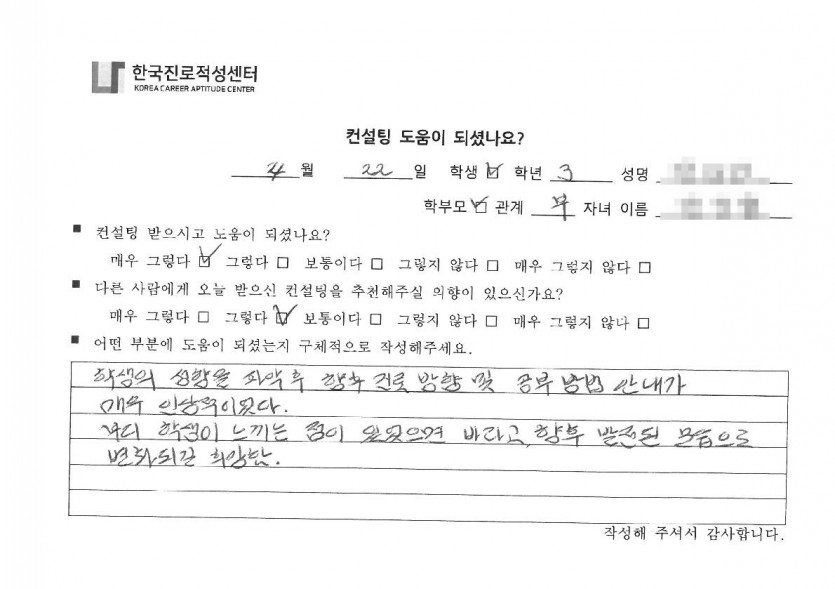 한국진로적성센터
KOREA CAREER APTITUDE CENTER
컨설팅 도움이 되셨나요?
4 월 22 일 학생 ☑ 학년 3 성명
학부모 ☑ 관계 부 자녀 이름
■ 컨설팅 받으시고 도움이 되셨나요?
매우 그렇다 ☑ 그렇다 □ 보통이다 □ 그렇지 않다 □ 매우 그렇지 않다 □
■ 다른 사람에게 오늘 받으신 컨설팅을 추천해주실 의향이 있으신가요?
매우 그렇다 □ 그렇다 ☑ 보통이다 □ 그렇지 않다 □ 매우 그렇지 않다 □
■ 어떤 부분에 도움이 되셨는지 구체적으로 작성해주세요.
학생의 성향을 파악후 향후 진로 방향 및 공부 방법 안내가
매우 인상적이었다.
부디 학생이 느끼는 점이 있었으면 바라고, 향후 발전된 모습으로
변화되길 희망함.
작성해 주셔서 감사합니다.